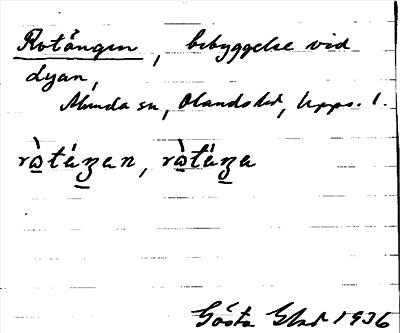 Rotängen, bebyggelse vid
dyan,
Almunda sn, Olands hd, Upps. l.
rὰtáꜫan, rὰtäꜫa
Gösta Glad 1936